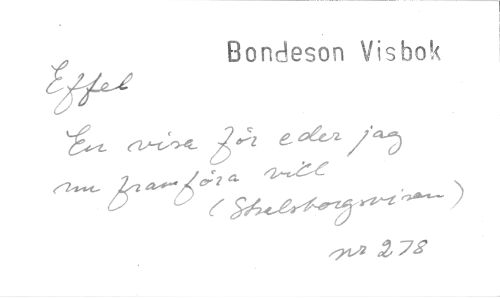 Bondeson Visbok
Effel
En visa för eder jag
nu framföra vill
(Stralsborgsvisan)
nr 278